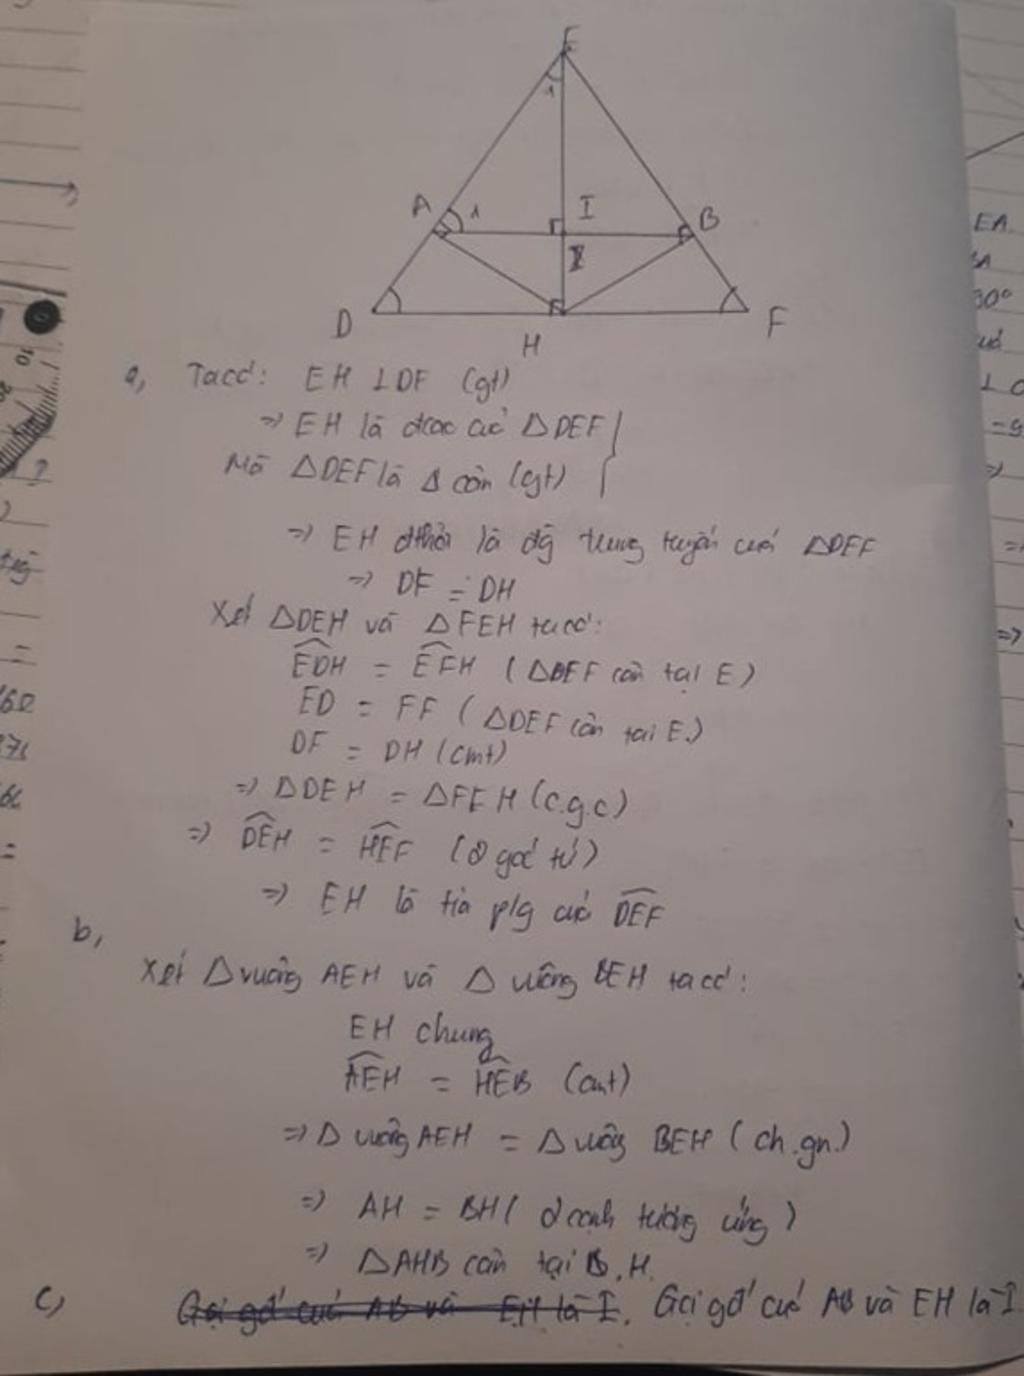 E
1
A 1 I B
I
D H F
a, Ta có: EH ⊥ DF (gt)
=> EH là đcao củả ΔDEF
Mà ΔDEF là Δ cân (gt)
=> EH đthời là đg trung tuyến cuả ΔDEF
=> DF = DH
Xét ΔDEH và ΔFEH ta có:
EDH = EFH (ΔDEF cân tại E)
ED = FF (ΔDEF cân tại E.)
DF = DH (cmt)
=> ΔDEH = ΔFEH (c.g.c)
=> DEH = HEF (2 góc tứ)
=> EH là tia p/g cuả DEF
b,
Xét Δ vuông AEH và Δ vuông BEH ta có:
EH chung
AEH = HEB (cmt)
=> Δ vuông AEH = Δ vuông BEH (ch.gn.)
=> AH = BH (2 cạnh tương ứng)
=> ΔAHB cân tại B, H.
c) Gọi gđ cuả AB và EH là I. Gọi gđ cuả AB và EH là I
EA
30°
10
20
?
=
=>